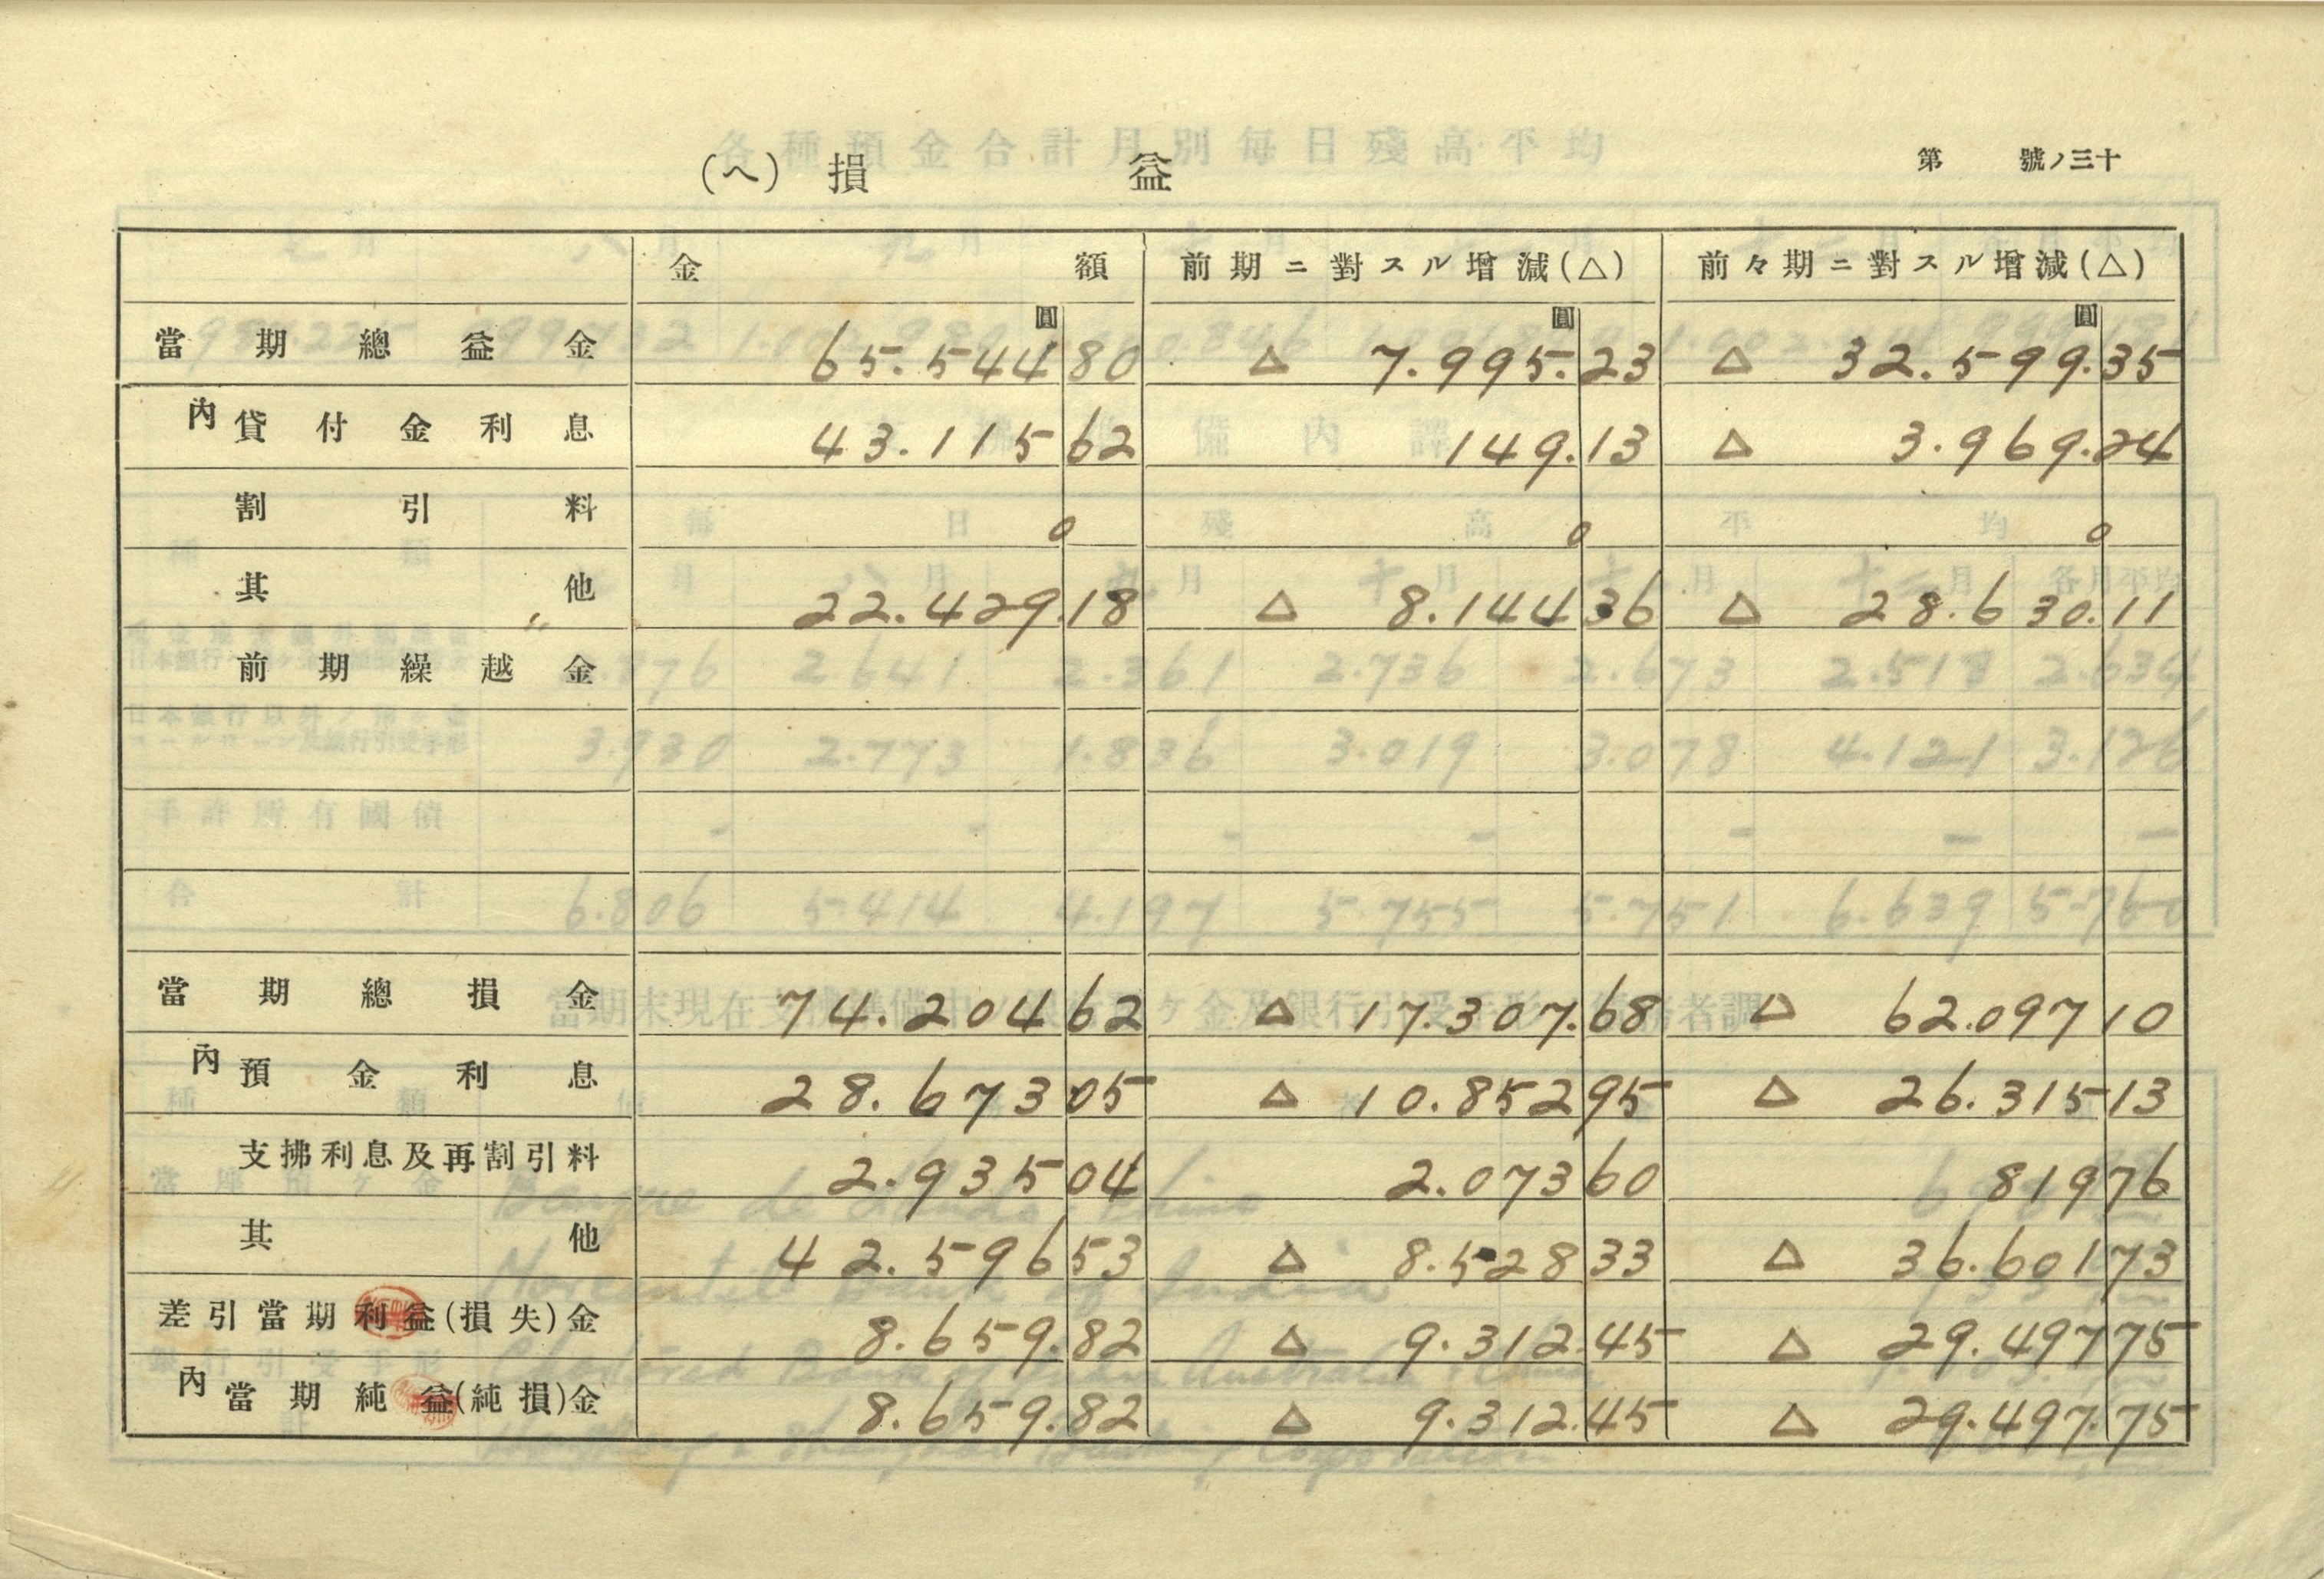 (ヘ) 損 益
第 號ノ三十
金 額 前期ニ對スル增減(△) 前々期ニ對スル增減(△)
圓 圓 圓
當期總益金 65.544 80 △ 7.995.23 △ 32.599.35
內 貸付金利息 43.115 62 149.13 △ 3.969.24
割引料 0 0 0
其他 22.429.18 △ 8.144 36 △ 28.630.11
〃
前期繰越金
當期總損金 74.204 62 △ 17.307.68 △ 62.097 10
內 預金利息 28.673 05 △ 10.852 95 △ 26.315 13
支拂利息及再割引料 2.935 04 2.073 60 819 76
其他 42.596 53 △ 8.528 33 △ 36.601 73
差引當期利益(損失)金 8.659.82 △ 9.312.45 △ 29.497 75
內 當期純益(純損)金 8.659.82 △ 9.312.45 △ 29.497.75